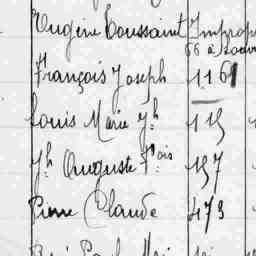 Eugène Toussaint Improp
66 à
François Joseph 1161
Louis Marie Jh 113
Jh Auguste Fois 157
Pierre Claude 473